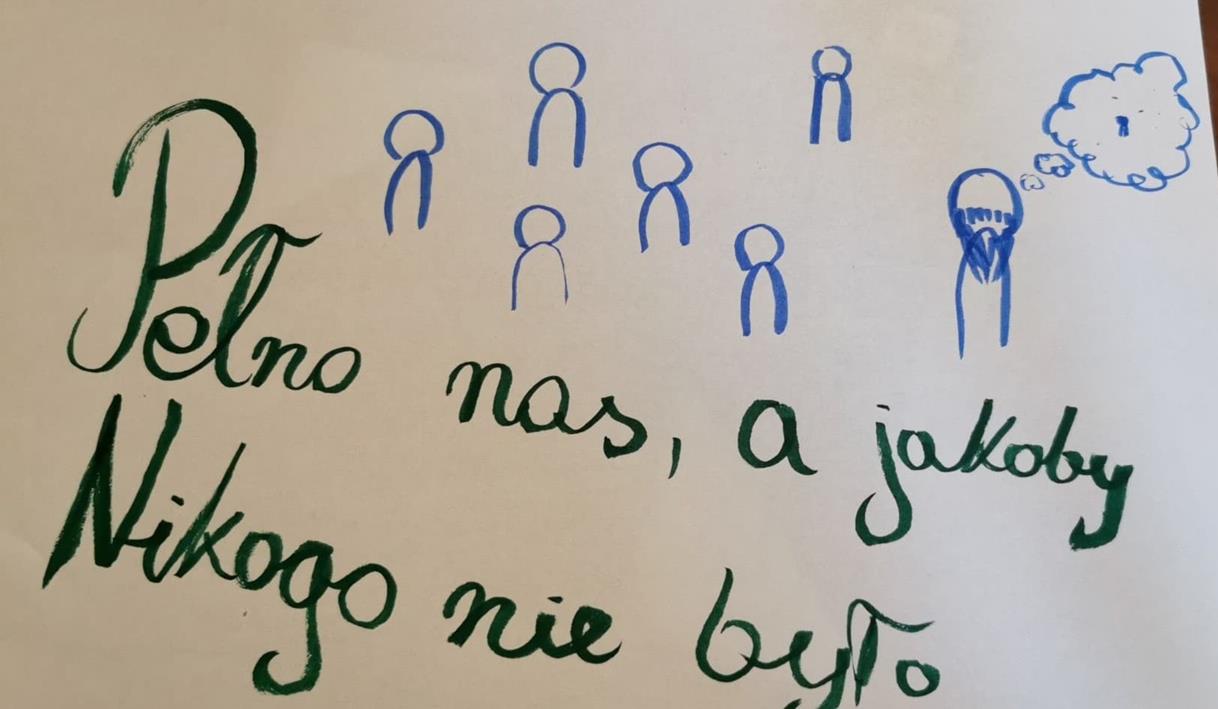 Pełno nas, a jakoby
Nikogo nie było